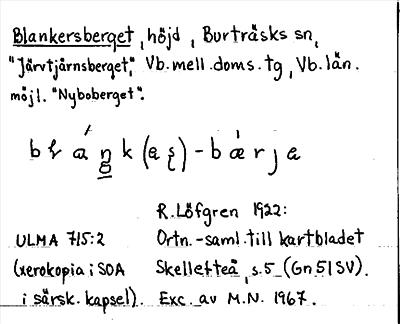 Blankersberget, höjd, Burträsks sn,
"Järvtjärnsberget," Vb. mell. doms. tg, Vb. län.
möjl. "Nyboberget".
R. Löfgren 1922:
ULMA 715:2 Ortn.-saml. till kartbladet
(xerokopia i SOA Skellefteå, s. 5 (Gn 51 SV).
i särsk. kapsel). Exc. av M.N. 1967.